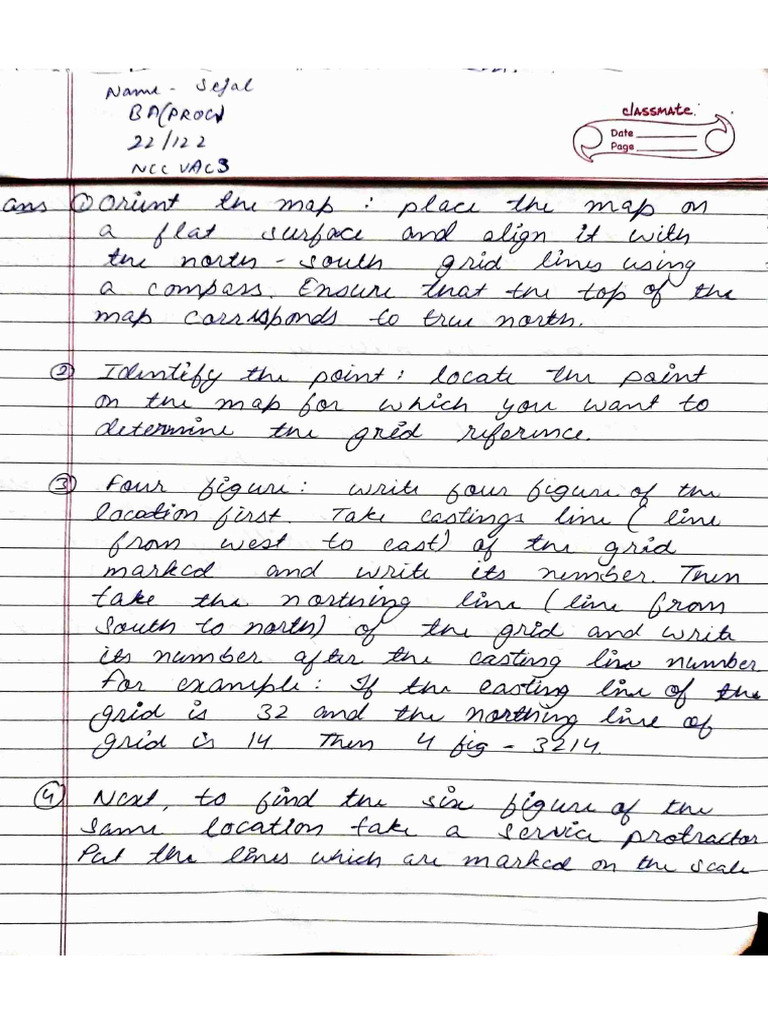 Name - Sejal
BA(PROG)
22/122
NCC VAC3
classmate
Date
Page
ans ① Orient the map : place the map on
a flat surface and align it with
the north - south grid lines using
a compass. Ensure that the top of the
map corresponds to true north.
② Identify the point : locate the point
on the map for which you want to
determine the grid reference.
③ Four figure : write four figure of the
location first. Take eastings line ( line
from west to east) of the grid
marked and write its number. Then
take the northing line ( line from
south to north) of the grid and write
its number after the easting line number.
For example : If the easting line of the
grid is 32 and the northing line of
grid is 14. Then 4 fig - 3214.
④ Next, to find the six figure of the
same location take a service protractor
Put the lines which are marked on the scale